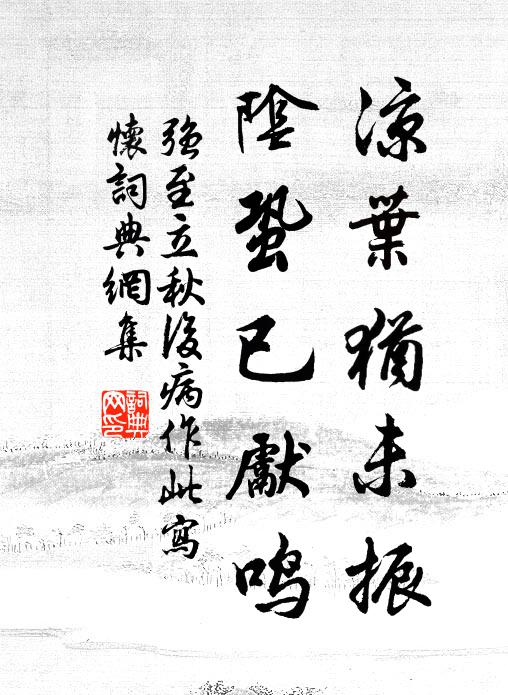 涼葉猶未振
陰蛩已獻鳴
強至立秋後病作此寫
懷詞典網集
詞典网印